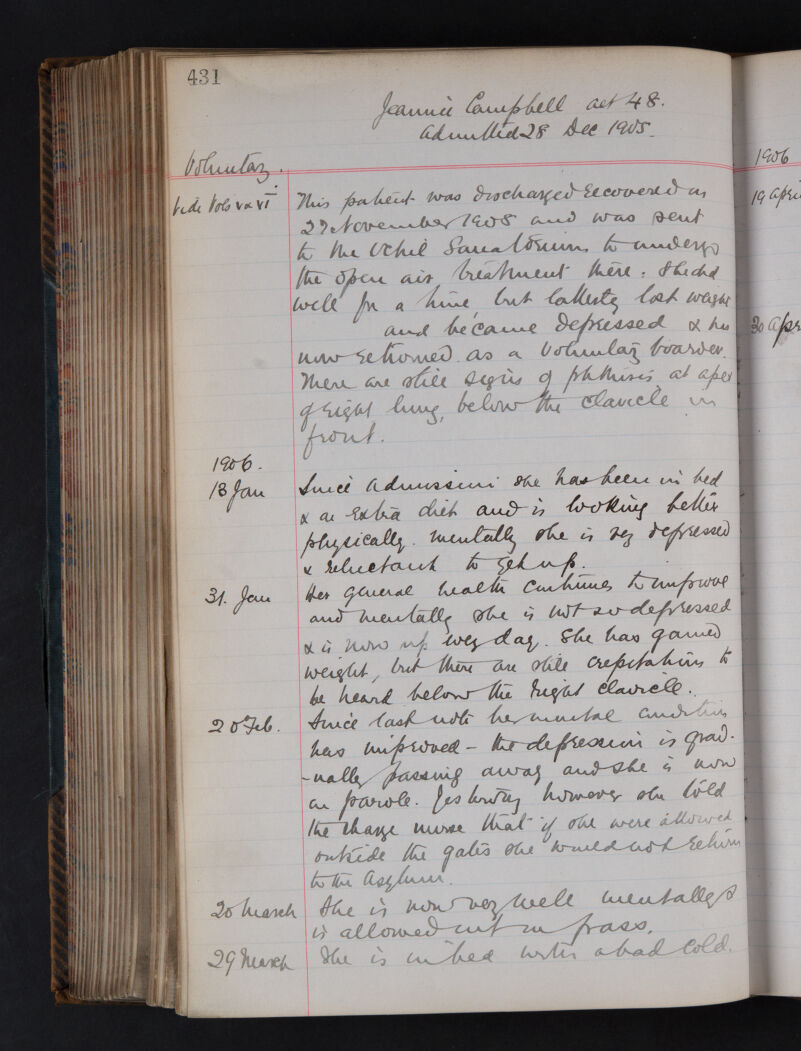 431
Jeannie Campbell aet 48.
Admitted 28 Dec 1905.
Voluntary.
1906
Vide Vols V & VI
This patient was discharged recovered on
27 November 1905 and was sent
to the Ochil Sanatorium to undergo
the open air treatment there. She did
well for a time, but latterly lost weight
and became depressed & has
now returned as a voluntary boarder.
There are still signs of phthisis at apex
of right lung, below the clavicle in
front.
1906.
13 Jan
Since admission she has been in bed
& on extra diet and is looking better
physically. Mentally she is very depressed
& reluctant to get up.
31. Jan
Her general health continues to improve
and mentally she is not so depressed
& is now up every day. She has gained
weight, but there are still crepitations to
be heard below the right clavicle.
20 Feb.
Since last note her mental condition
has improved - the depression is grad-
-ually passing away and she is now
on parole. Yesterday however she told
the charge nurse that if she were allowed
outside the gates she would not return
to the Asylum.
20 March
She is now very well mentally &
is allowed out on pass.
29 March
She is in bed with a bad cold.
19 Apri
30 Apr